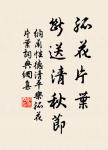 孤花片葉
斷送清秋節
納蘭性德清平樂孤花
片葉詞典網書